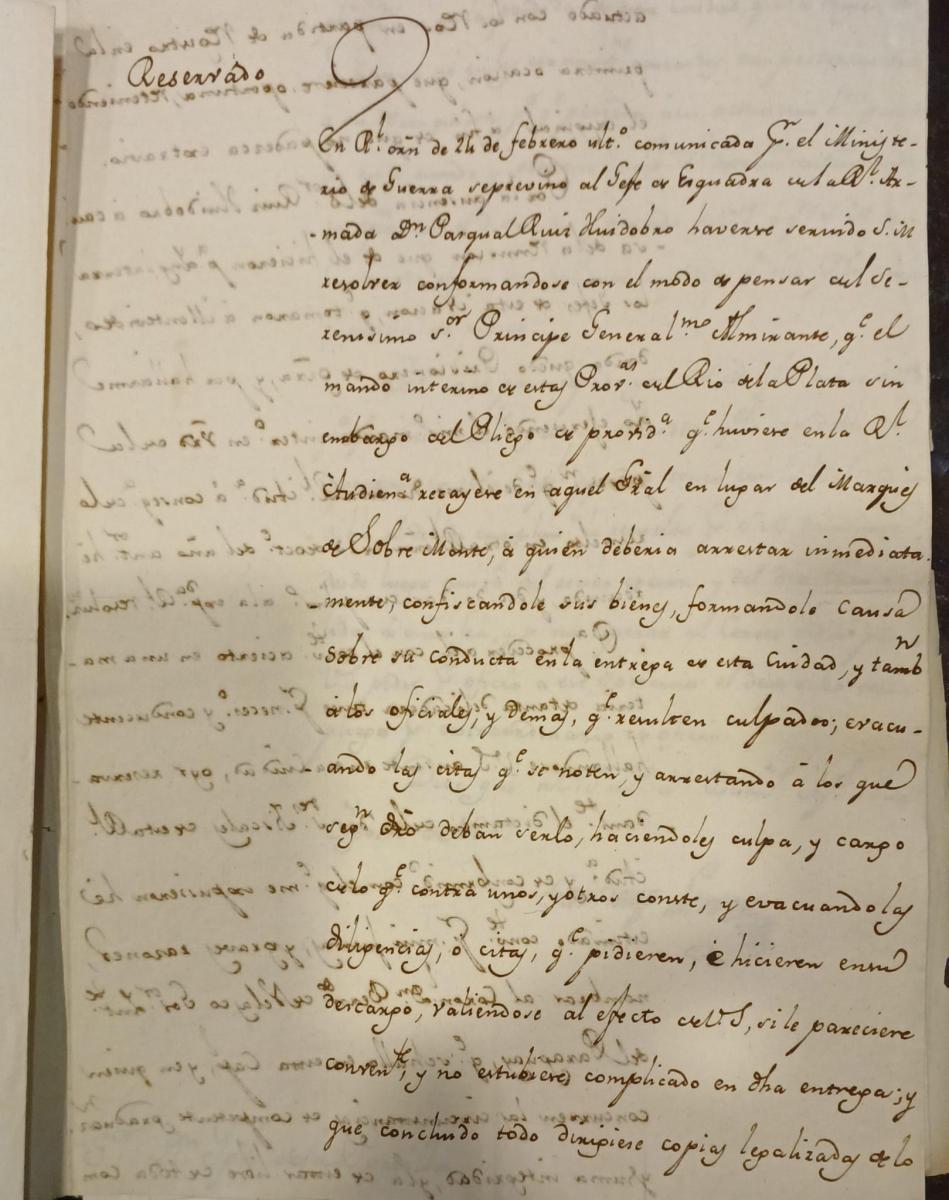 Reservado
En Rl. orn de 24 de febrero ulto. comunicada Pr. el Ministe-
rio de Guerra se previno al Gefe de Esquadra de la Rl. Ar-
-mada Dn Pasqual Ruiz Huidobro haverse servido S. M
resolver conformandose con el modo de pensar del Se-
renisimo Sor. Principe Generalmo Almirante, qe. el
mando interino de estas Provas. del Rio de la Plata sin
embargo del Pliego de provida. qe. huviere en la Rl.
Audiena. recayese en aquel Gral en lugar del Marques
de Sobre Monte, á quien deberia arrestar inmediata.
mente, confiscandole sus bienes, formandole causa
sobre su conducta en la entrega de esta Ciudad, y tambn
á los oficiales, y demas, qe. resulten culpados; evacu-
ando las citas qe. se noten, y arrestando á los que
segn dro deban serlo, haciendoles culpa, y cargo
de lo qe. contra unos, y otros conste, y evacuando las
diligencias, ó citas, qe. pidieren, é hicieren en su
descargo, valiendose al efecto de V. S, si le pareciere
convente, y no estubiere complicado en dha entrega; y
que concluido todo dirigiese copias legalizadas de lo